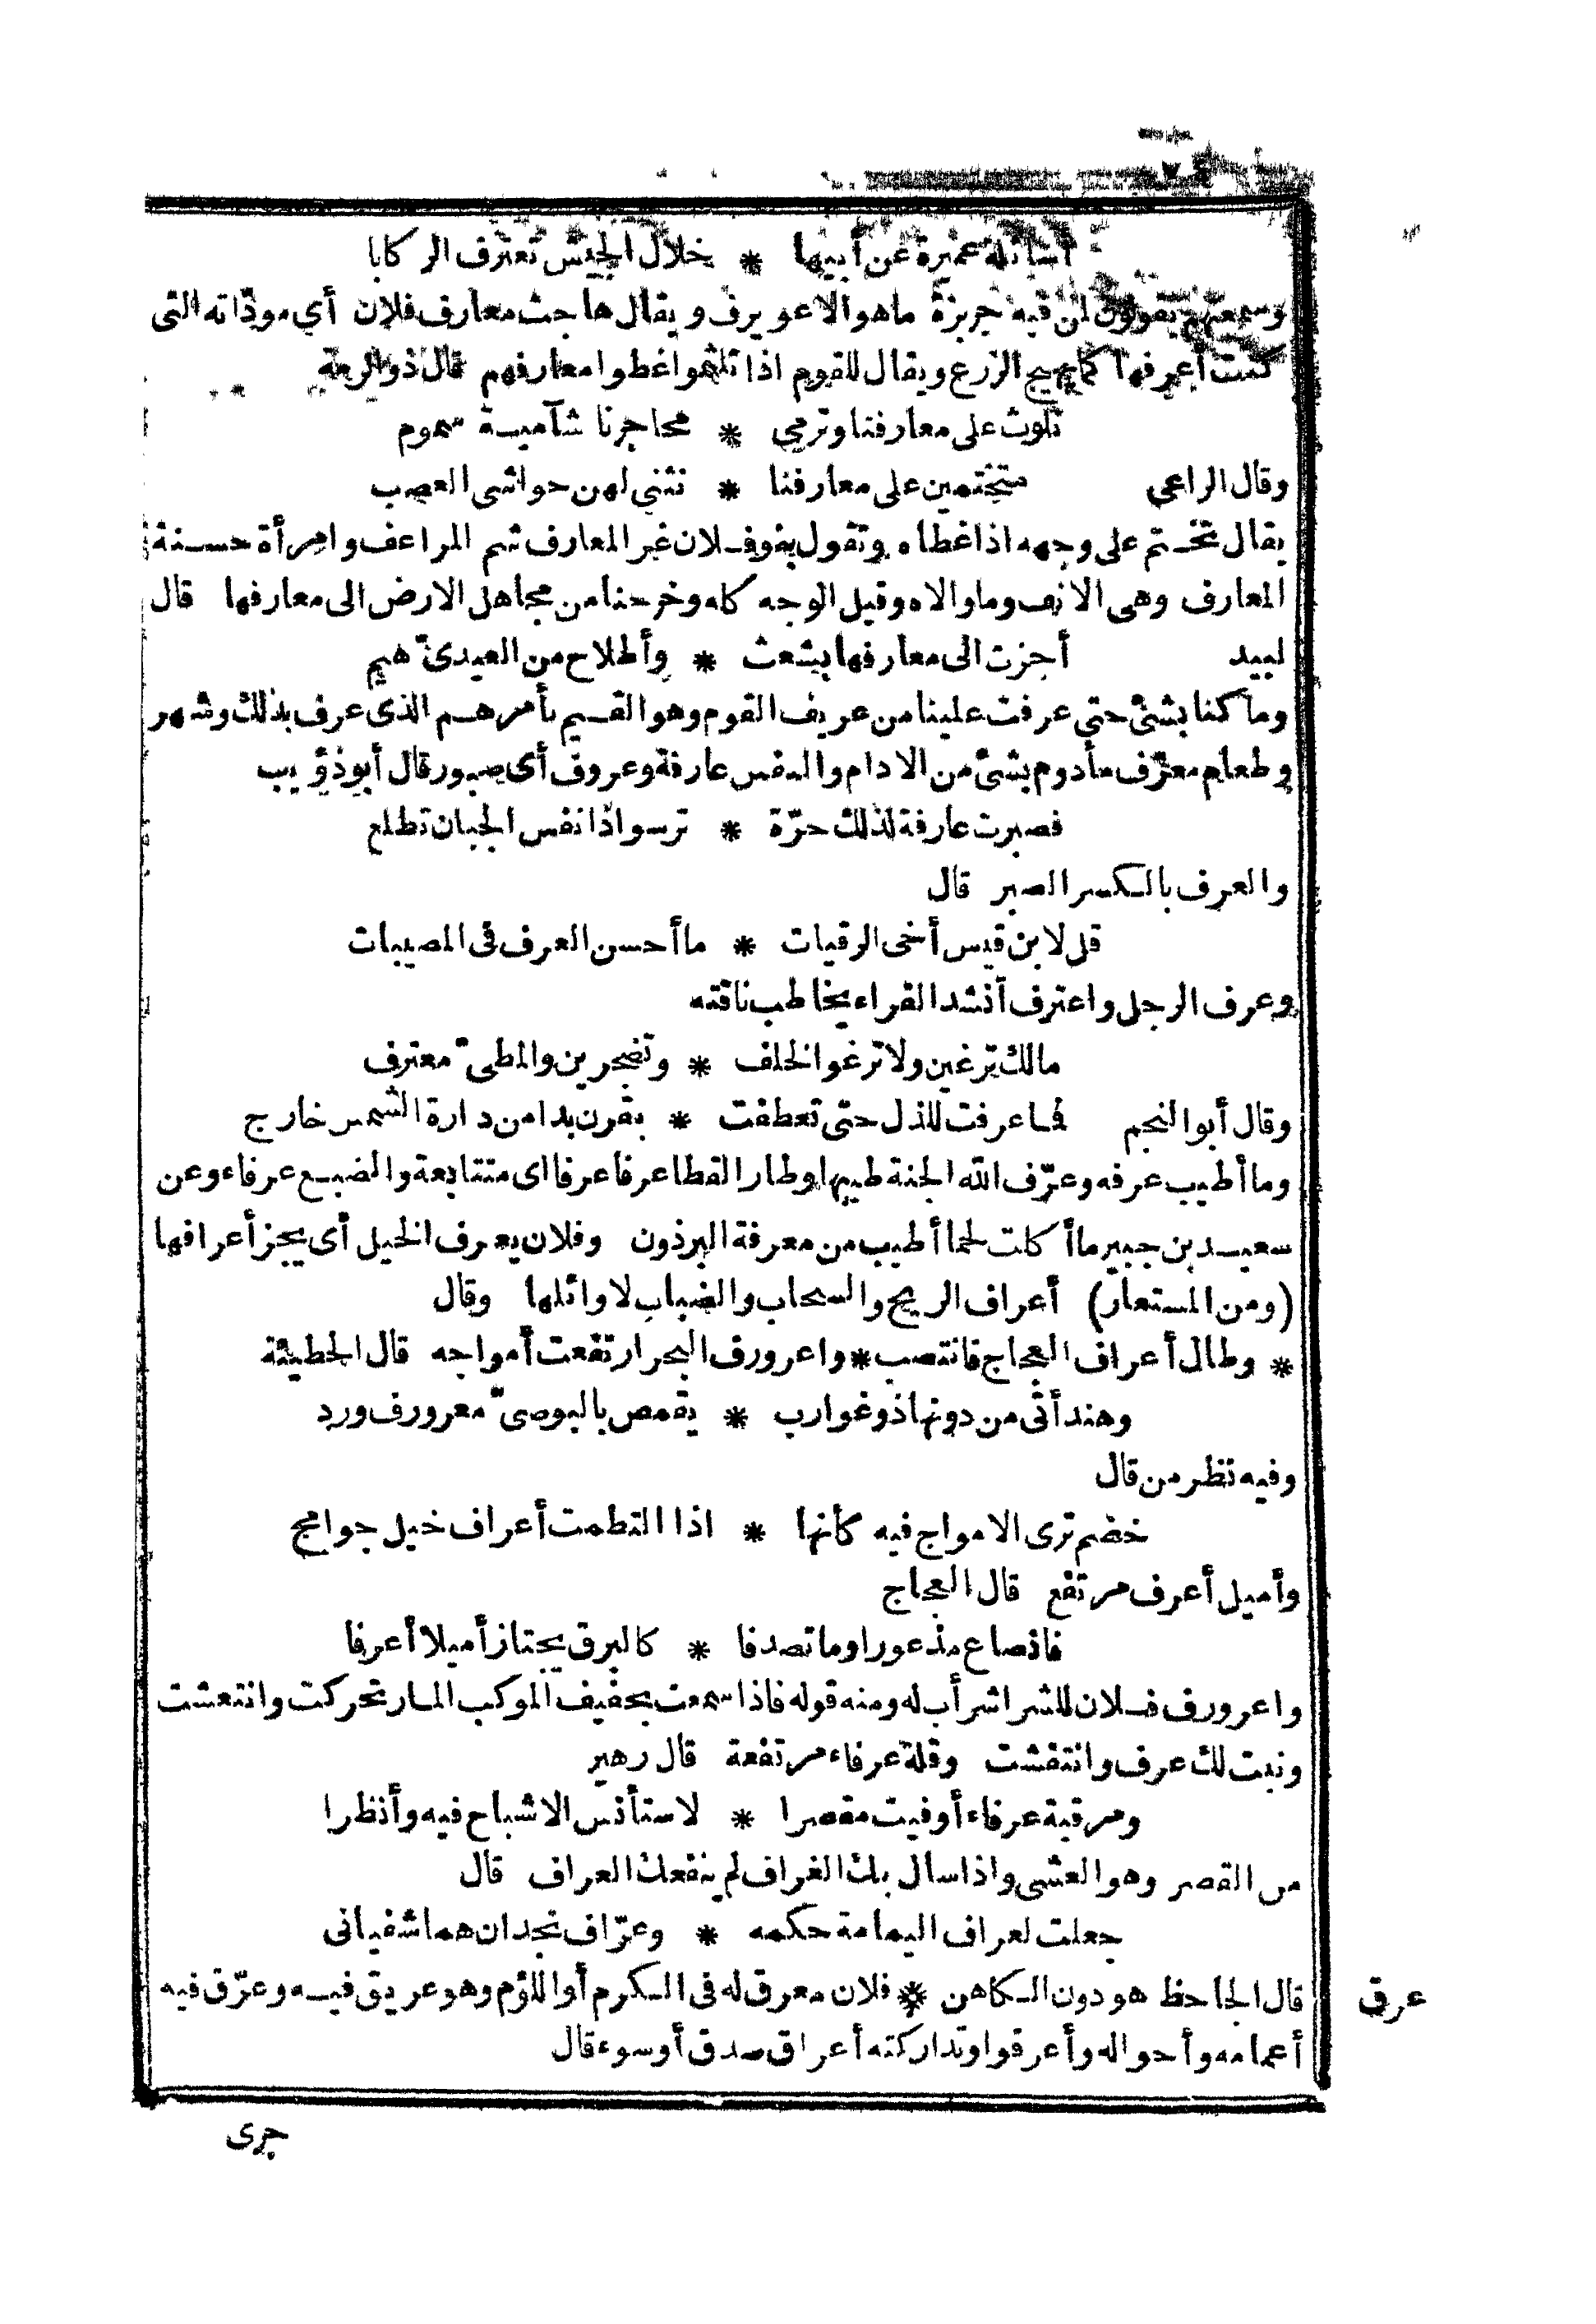 أسائلة عميرة عن أبيها * خلال الجيش تعترف الركابا
وسمعتهم يقولون لمن فيه جربزة ما هو الا عويرف ويقال هاجت معارف فلان أي مودّاته التى
كنت أعرفها كما يهيج الزرع ويقال للقوم اذا تلثموا غطوا معارفهم قال ذو الرمة
تلوث على معارفنا وترمي * محاجرنا شآمية سموم
وقال الراعي متختمين على معارفنا * نثنى لهن حواشى العصب
يقال تختم على وجهه اذا غطاه وتقول بنو فلان غر المعارف شم المراعف وامرأة حسنة
المعارف وهى الانف وما والاه وقيل الوجه كله وخرجنا من مجاهل الارض الى معارفها قال
لبيد أجزت الى معارفها بشعث * وأطلاح من العيدىّ هيم
وما كنا بشئ حتى عرفت علينا من عريف القوم وهو القسيم بأمرهم الذى عرف بذلك وشهر
وطعام معرّف مأدوم بشئ من الادام والنفس عارفة وعروف أى صبور قال أبو ذؤيب
فصبرت عارفة لذلك حرّة * ترسو اذا نفس الجبان تطلع
والعرف بالكسر الصبر قال
قل لابن قيس أخى الرقيات * ما أحسن العرف فى المصيبات
وعرف الرجل واعترف أنشد الفراء يخاطب ناقته
مالك ترغين ولا ترغو الخلف * وتضجرين والمطىّ معترف
وقال أبو النجم فما عرفت للذل حتى تعطفت * بقرن بدا من دارة الشمس خارج
وما أطيب عرفه وعرّف الله الجنة طيبها وطار القطا عرفا عرفا اى متتابعة والضبع عرفاء وعن
سعيد بن جبير ما أكلت لحما أطيب من معرفة البرذون وفلان يعرف الخيل أى يجز أعرافها
(ومن المستعار) أعراف الريح والسحاب والضباب لاوائلها وقال
* وطال أعراف العجاج فانتصب * واعرورف البحر ارتفعت أمواجه قال الحطيئة
وهند أتى من دونها ذو غوارب * يقمص بالبوصىّ معرورف ورد
وفيه نظر من قال
خضم ترى الامواج فيه كأنها * اذا التطمت أعراف خيل جوامح
وأميل أعرف مرتفع قال العجاج
فانصاع مذعورا وما تصدفا * كالبرق يجتاز أميلا أعرفا
واعرورف فلان للشر اشرأب له ومنه قوله فاذا سمعت بحفيف الموكب المار تحركت وانتعشت
ونبت لك عرف وانتفشت وقلة عرفاء مرتفعة قال زهير
ومرقبة عرفاء أوفيت مقصرا * لاستأنس الاشباح فيه وأنظرا
من القصر وهو العشى واذا سال بك الغراف لم ينفعك العراف قال
جعلت لعراف اليمامة حكمه * وعرّاف نجد ان هما شفيانى
عرق قال الجاحظ هو دون الكاهن * فلان معرق له فى الكرم أو اللؤم وهو عريق فيه وعرّق فيه
أعمامه وأخواله وأعرقوا وتداركته أعراق صدق أو سوء قال
جرى